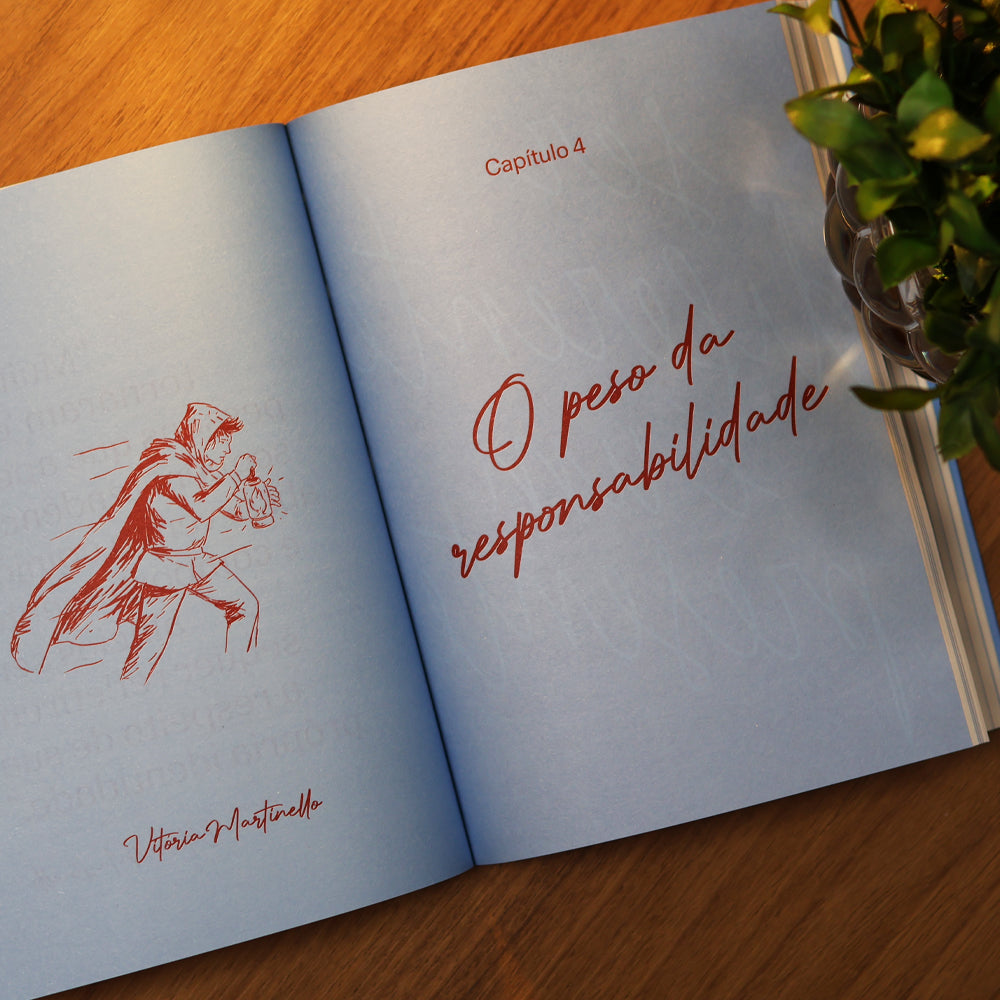 Vitória Martinello
Capítulo 4
O peso da
responsabilidade